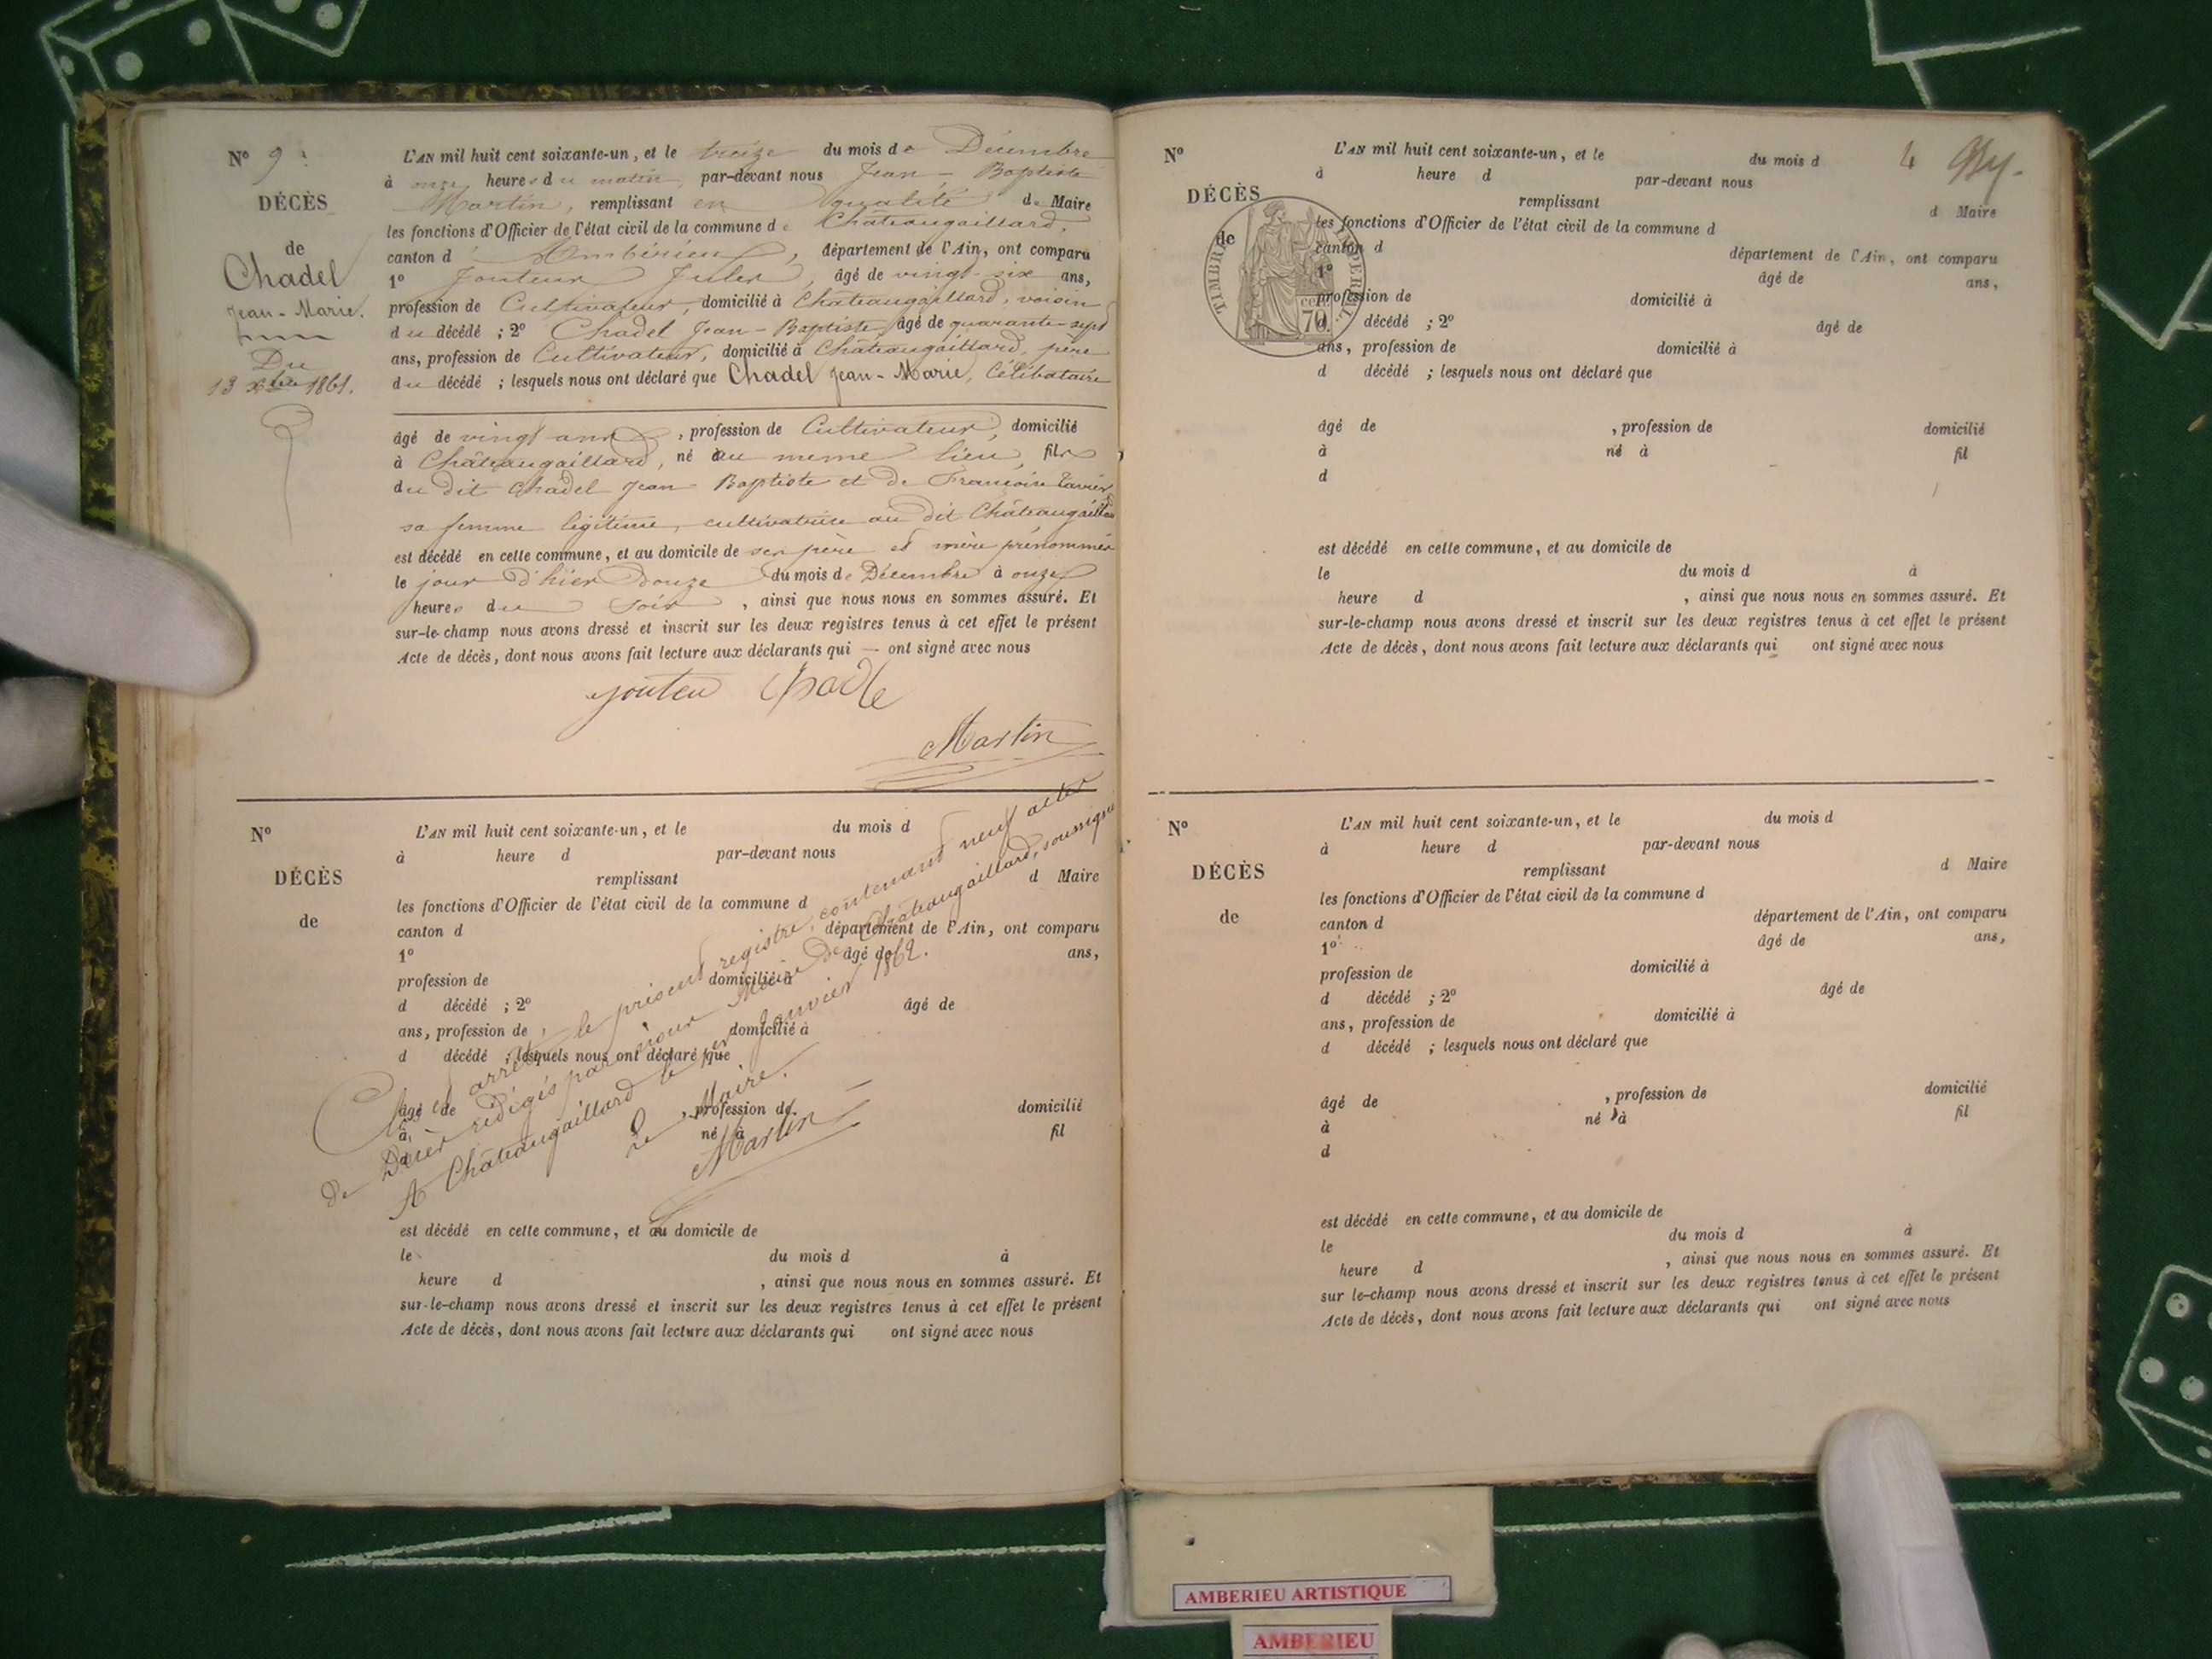 N° 9.
DÉCÈS
de
Chadel
Jean-Marie.
Du
13 xbre 1861.
L'AN mil huit cent soixante-un, et le treize du mois de Décembre
à onze heures du matin, par-devant nous Jean-Baptiste
Martin, remplissant en qualité de Maire
les fonctions d'Officier de l'état civil de la commune de Châteaugaillard,
canton d'Ambérieux, département de l'Ain, ont comparu
1° Jouteur Jules, âgé de vingt-six ans,
profession de Cultivateur, domicilié à Châteaugaillard, voisin
du décédé ; 2° Chadel Jean-Baptiste, âgé de quarante-sept
ans, profession de Cultivateur, domicilié à Châteaugaillard, père
du décédé ; lesquels nous ont déclaré que Chadel Jean-Marie, Célibataire
âgé de vingt ans, profession de Cultivateur, domicilié
à Châteaugaillard, né au meme lieu, fils
du dit Chadel Jean Baptiste et de Françoise
sa femme légitime, cultivatrice au dit Châteaugaillard
est décédé en cette commune, et au domicile de ses père et mère prénommés
le jour d'hier douze du mois de Décembre à onze
heures du soir, ainsi que nous nous en sommes assuré. Et
sur-le-champ nous avons dressé et inscrit sur les deux registres tenus à cet effet le présent
Acte de décès, dont nous avons fait lecture aux déclarants qui — ont signé avec nous
Jouteu Chadle
Martin
N°
DÉCÈS
de
L'AN mil huit cent soixante-un, et le du mois d
à heure d par-devant nous
remplissant d Maire
les fonctions d'Officier de l'état civil de la commune d
canton d département de l'Ain, ont comparu
1° âgé de ans,
profession de domicilié à
d décédé ; 2° âgé de
ans, profession de domicilié à
d décédé ; lesquels nous ont déclaré que
âgé de , profession de domicilié
à né à fil
d
Clos et arrêté le présent registre, contenant neuf actes
de Décès rédigés par nous Maire de Châteaugaillard, soussigné
A Châteaugaillard le 1er Janvier 1862.
Le Maire.
Martin
est décédé en cette commune, et au domicile de
le du mois d à
heure d , ainsi que nous nous en sommes assuré. Et
sur-le-champ nous avons dressé et inscrit sur les deux registres tenus à cet effet le présent
Acte de décès, dont nous avons fait lecture aux déclarants qui ont signé avec nous
4
N°
DÉCÈS
de
TIMBRE IMPERIAL
70 cen.
L'AN mil huit cent soixante-un, et le du mois d
à heure d par-devant nous
remplissant d Maire
les fonctions d'Officier de l'état civil de la commune d
canton d département de l'Ain, ont comparu
1° âgé de ans,
profession de domicilié à
d décédé ; 2° âgé de
ans, profession de domicilié à
d décédé ; lesquels nous ont déclaré que
âgé de , profession de domicilié
à né à fil
d
est décédé en cette commune, et au domicile de
le du mois d à
heure d , ainsi que nous nous en sommes assuré. Et
sur-le-champ nous avons dressé et inscrit sur les deux registres tenus à cet effet le présent
Acte de décès, dont nous avons fait lecture aux déclarants qui ont signé avec nous
N°
DÉCÈS
de
L'AN mil huit cent soixante-un, et le du mois d
à heure d par-devant nous
remplissant d Maire
les fonctions d'Officier de l'état civil de la commune d
canton d département de l'Ain, ont comparu
1° âgé de ans,
profession de domicilié à
d décédé ; 2° âgé de
ans, profession de domicilié à
d décédé ; lesquels nous ont déclaré que
âgé de , profession de domicilié
à né à fil
d
est décédé en cette commune, et au domicile de
le du mois d à
heure d , ainsi que nous nous en sommes assuré. Et
sur le-champ nous avons dressé et inscrit sur les deux registres tenus à cet effet le présent
Acte de décès, dont nous avons fait lecture aux déclarants qui ont signé avec nous
AMBERIEU ARTISTIQUE
AMBERIEU